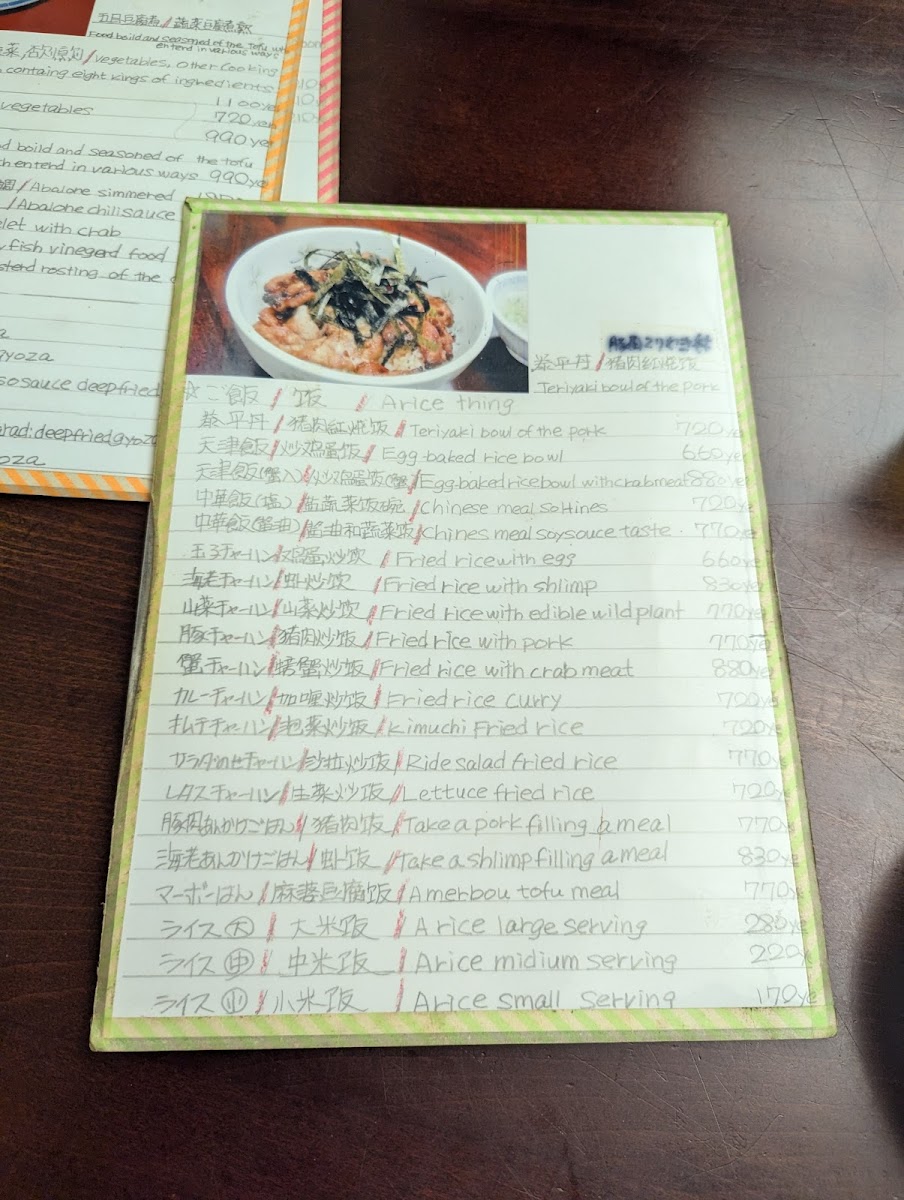 五目豆腐煮/蔬菜豆腐煮熬
Food boild and seasoned of the Tofu wh
entend in various ways
/Vegetables, Other Cooking
containg eight kings of inghedients
1100ye
vegetables 720yen
990ye
d boild and seasoned of the tofu
ch entend in various ways 990ye
/Abalone simmered
/Abalone chilisauce
let with crab
fish vinegerd food
sterd rosting of the
a
gyoza
so sauce deepfried
rad: deepfried gyoza
oza
泰平丹/猪肉紅焼饭
Teriyaki bowl of the pork
☆ご飯/饭/Arice thing
泰平丹/猪肉紅焼饭/Teriyaki bowl of the pork 720ye
天津飯/炒鸡蛋饭/Egg-baked rice bowl 660ye
天津飯(蟹入)/炒鸡蛋饭(蟹)/Egg-baked rice bowl with crabmeat 880ye
中華飯(塩)/蔬菜饭碗/Chinese meal soHines 720ye
中華飯(醤油)/酱油和蔬菜饭/Chines meal soysouce taste 770ye
玉子チャーハン/鸡蛋炒饮/Fried rice with egg 660ye
海老チャーハン/虾炒饮/Fried rice with shlimp 830ye
山菜チャーハン/山菜炒饮/Fried rice with edible wild plant 770ye
豚チャーハン/猪肉炒饭/Fried rice with pork 770ye
蟹チャーハン/螃蟹炒饭/Fried rice with crab meat 880ye
カレーチャーハン/加喱炒饭/Fried rice curry 700ye
キムチチャーハン/泡菜炒饭/Kimuchi Fried rice 720ye
サラダのせチャーハン/沙拉炒饭/Ride salad fried rice 770ye
レタスチャーハン/生菜炒饭/Lettuce fried rice 720ye
豚肉あんかけごはん/猪肉饭/Take a pork filling a meal 770ye
海老あんかけごはん/虾饭/Take a shlimp filling a meal 830ye
マーボーごはん/麻蓉豆腐饭/Amerbou tofu meal 770ye
ライス㊅/大米饭/A rice large serving 280ye
ライス㊥/中米饭/Arice midium serving 220ye
ライス㊦/小米饭/Arice small serving 170ye